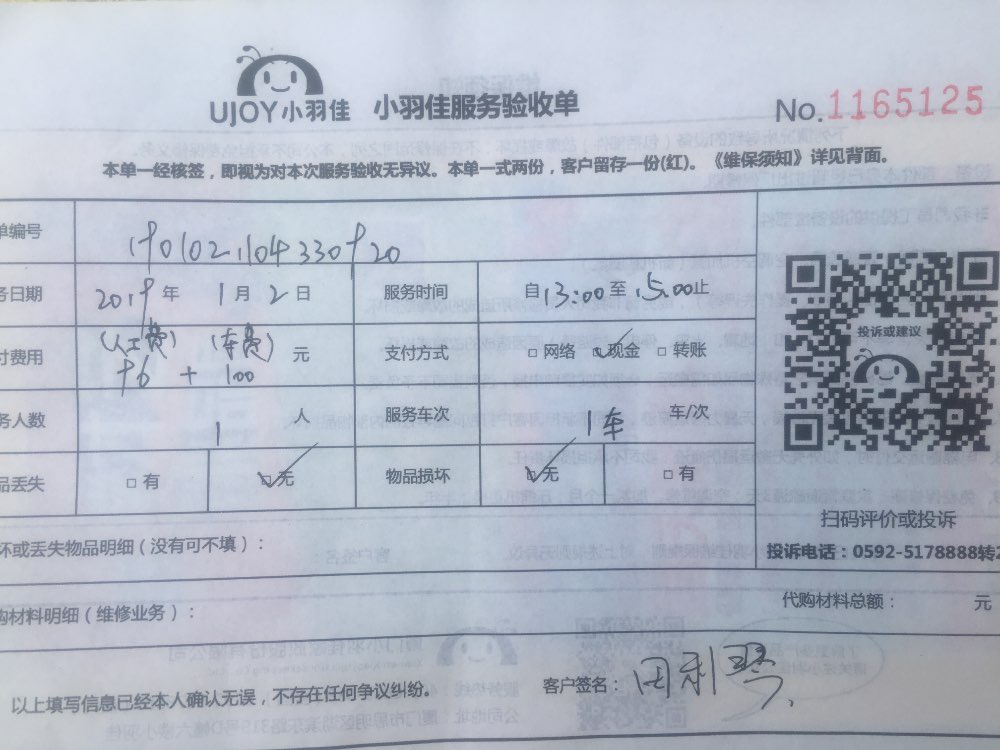 UJOY小羽佳 小羽佳服务验收单 No.1165125
本单一经核签，即视为对本次服务验收无异议。本单一式两份，客户留存一份(红)。《维保须知》详见背面。
单编号 1901021104330920
务日期 2019年 1月2日 服务时间 自13:00至15:00止
付费用 (人工费) (车费) 元 支付方式 □网络 ☑现金 □转账
96 + 100
务人数 1 人 服务车次 1车 车/次
品丢失 □有 ☑无 物品损坏 ☑无 □有
投诉或建议
扫码评价或投诉
坏或丢失物品明细（没有可不填）：
投诉电话：0592-5178888转2
购材料明细（维修业务）：
代购材料总额： 元
以上填写信息已经本人确认无误，不存在任何争议纠纷。 客户签名：田利琴